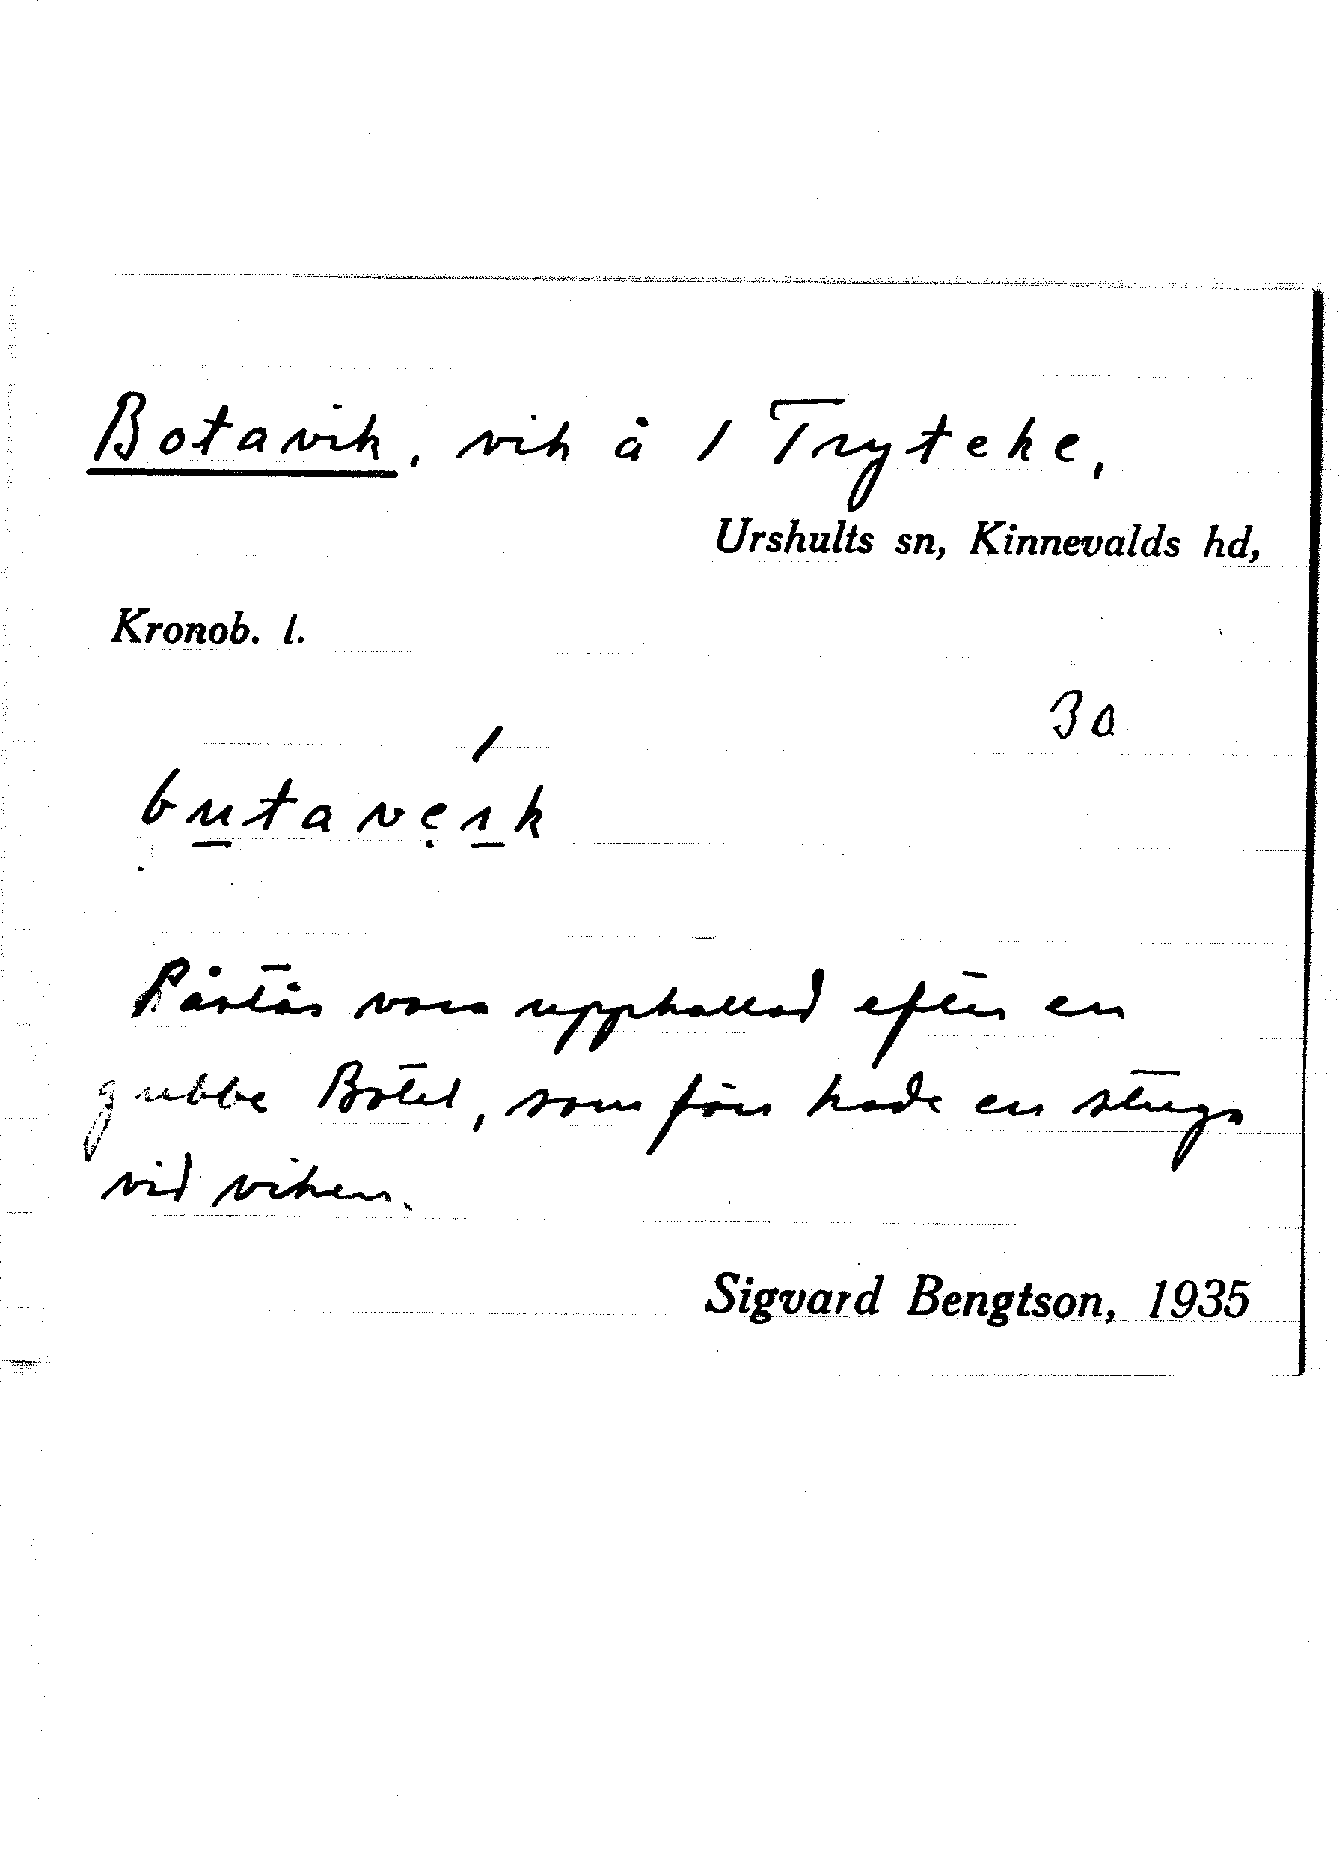 Botavik, vik å 1 Tryteke,
Urshults sn, Kinnevalds hd,
Kronob. l.
30
butaveık
Påstås vara uppkallad efter en
gubbe Botel, som förr hade en stuga
vid viken.
Sigvard Bengtson, 1935